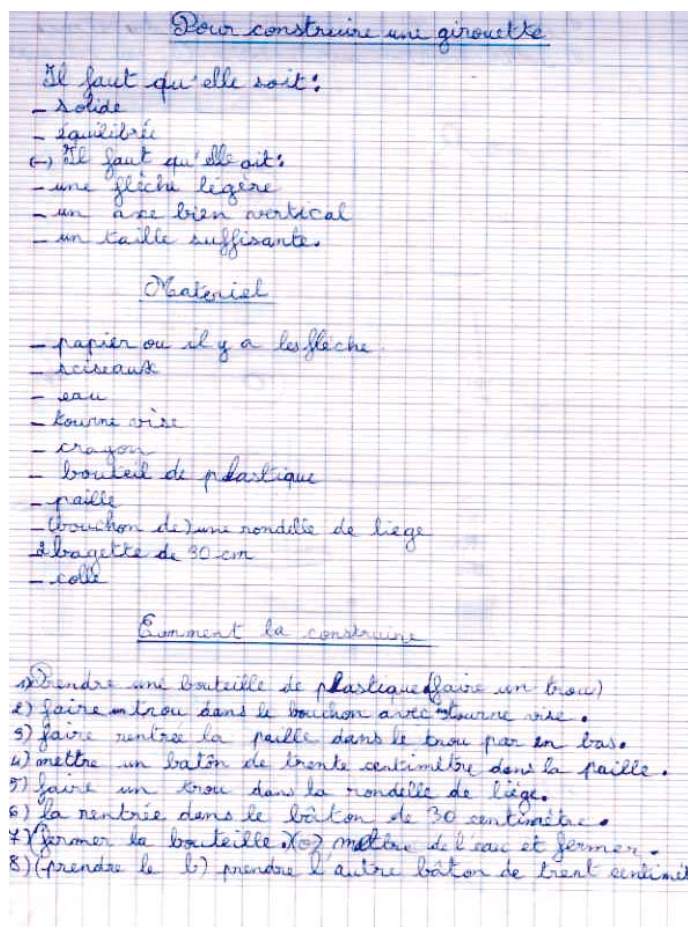 Pour construire une girouette
Il faut qu'elle soit :
- solide
- équilibrée
(-) Il faut qu'elle ait :
- une flèche légère
- un axe bien vertical
- un taille suffisante.
Materiel
- papier ou il y a les flèche.
- sciseaux
- eau
- tourne vise
- crayon
- bouteil de plastique
- paille
- (bouchon de) une rondelle de liège
2 bagette de 30 cm
- colle
Comment la construire
1) Prendre une bouteille de plastique (faire un trou)
2) faire un trou dans le bouchon avec tourne vise.
3) faire rentrée la paille dans le trou par en bas.
4) mettre un batôn de trente centimètre dans la paille.
5) faire un trou dans la rondelle de liège.
6) la rentrée dans le bâton de 30 centimètre.
7) (fermer la bouteille.) mettre de l'eau et fermer.
8) (prendre le b) prendre l'autre bâton de trent centimèt